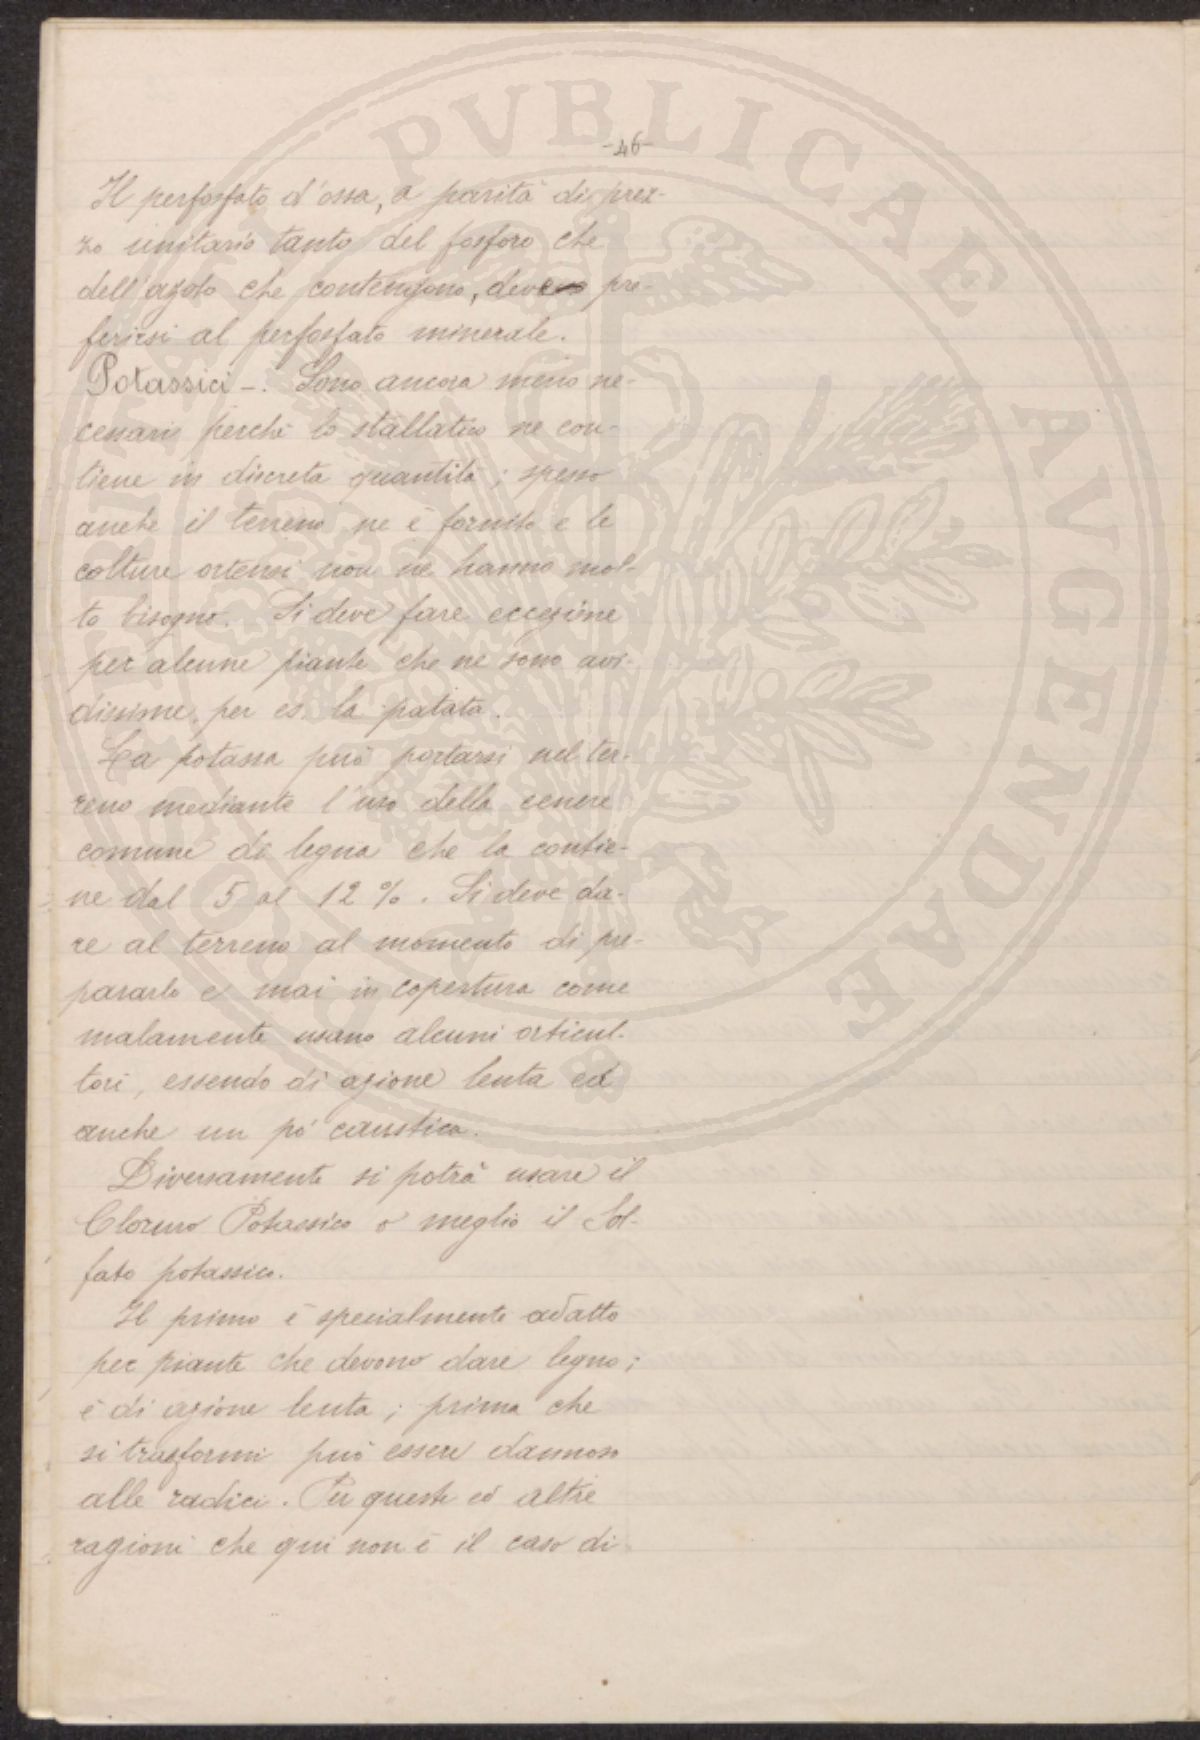 -46-
Il perfosfato d'ossa, a parità di prez-
zo unitario tanto del fosforo che
dell'azoto che contengono, deve pre-
ferirsi al perfosfato minerale.
Potassici -. Sono ancora meno ne-
cessari perchè lo stallatico ne con-
tiene in discreta quantità; spesso
anche il terreno ne è fornito e le
colture ortensi non ne hanno mol-
to bisogno. Si deve fare eccezione
per alcune piante che ne sono avi-
dissime, per es. la patata.
La potassa può portarsi nel ter-
reno mediante l'uso della cenere
comune di legna che la contie-
ne dal 5 al 12 %. Si deve da-
re al terreno al momento di pre-
pararlo e mai in copertura come
malamente usano alcuni orticul-
tori, essendo di azione lenta ed
anche un pó caustica.
Diversamente si potrà usare il
Cloruro Potassico o meglio il Sol-
fato potassico.
Il primo è specialmente adatto
per piante che devono dare legno;
è di azione lenta; prima che
si trasformi può essere dannoso
alle radici. Per queste ed altre
ragioni che qui non è il caso di
PVBLICAE AVGENDAE